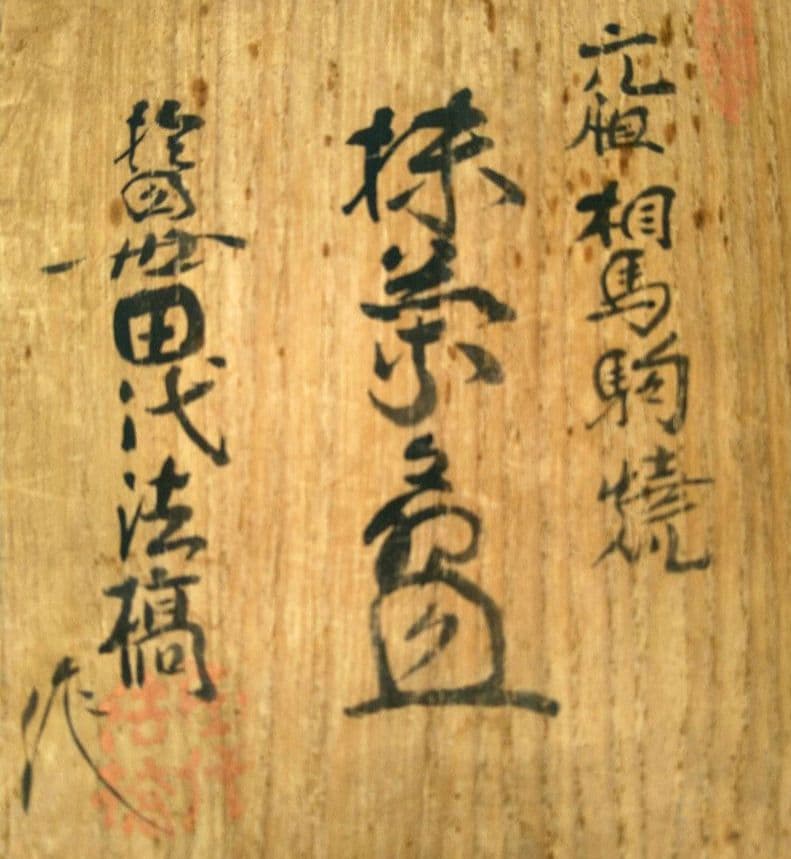 元祖 相馬駒焼
抹茶盌
拾四世 田代法橋
作